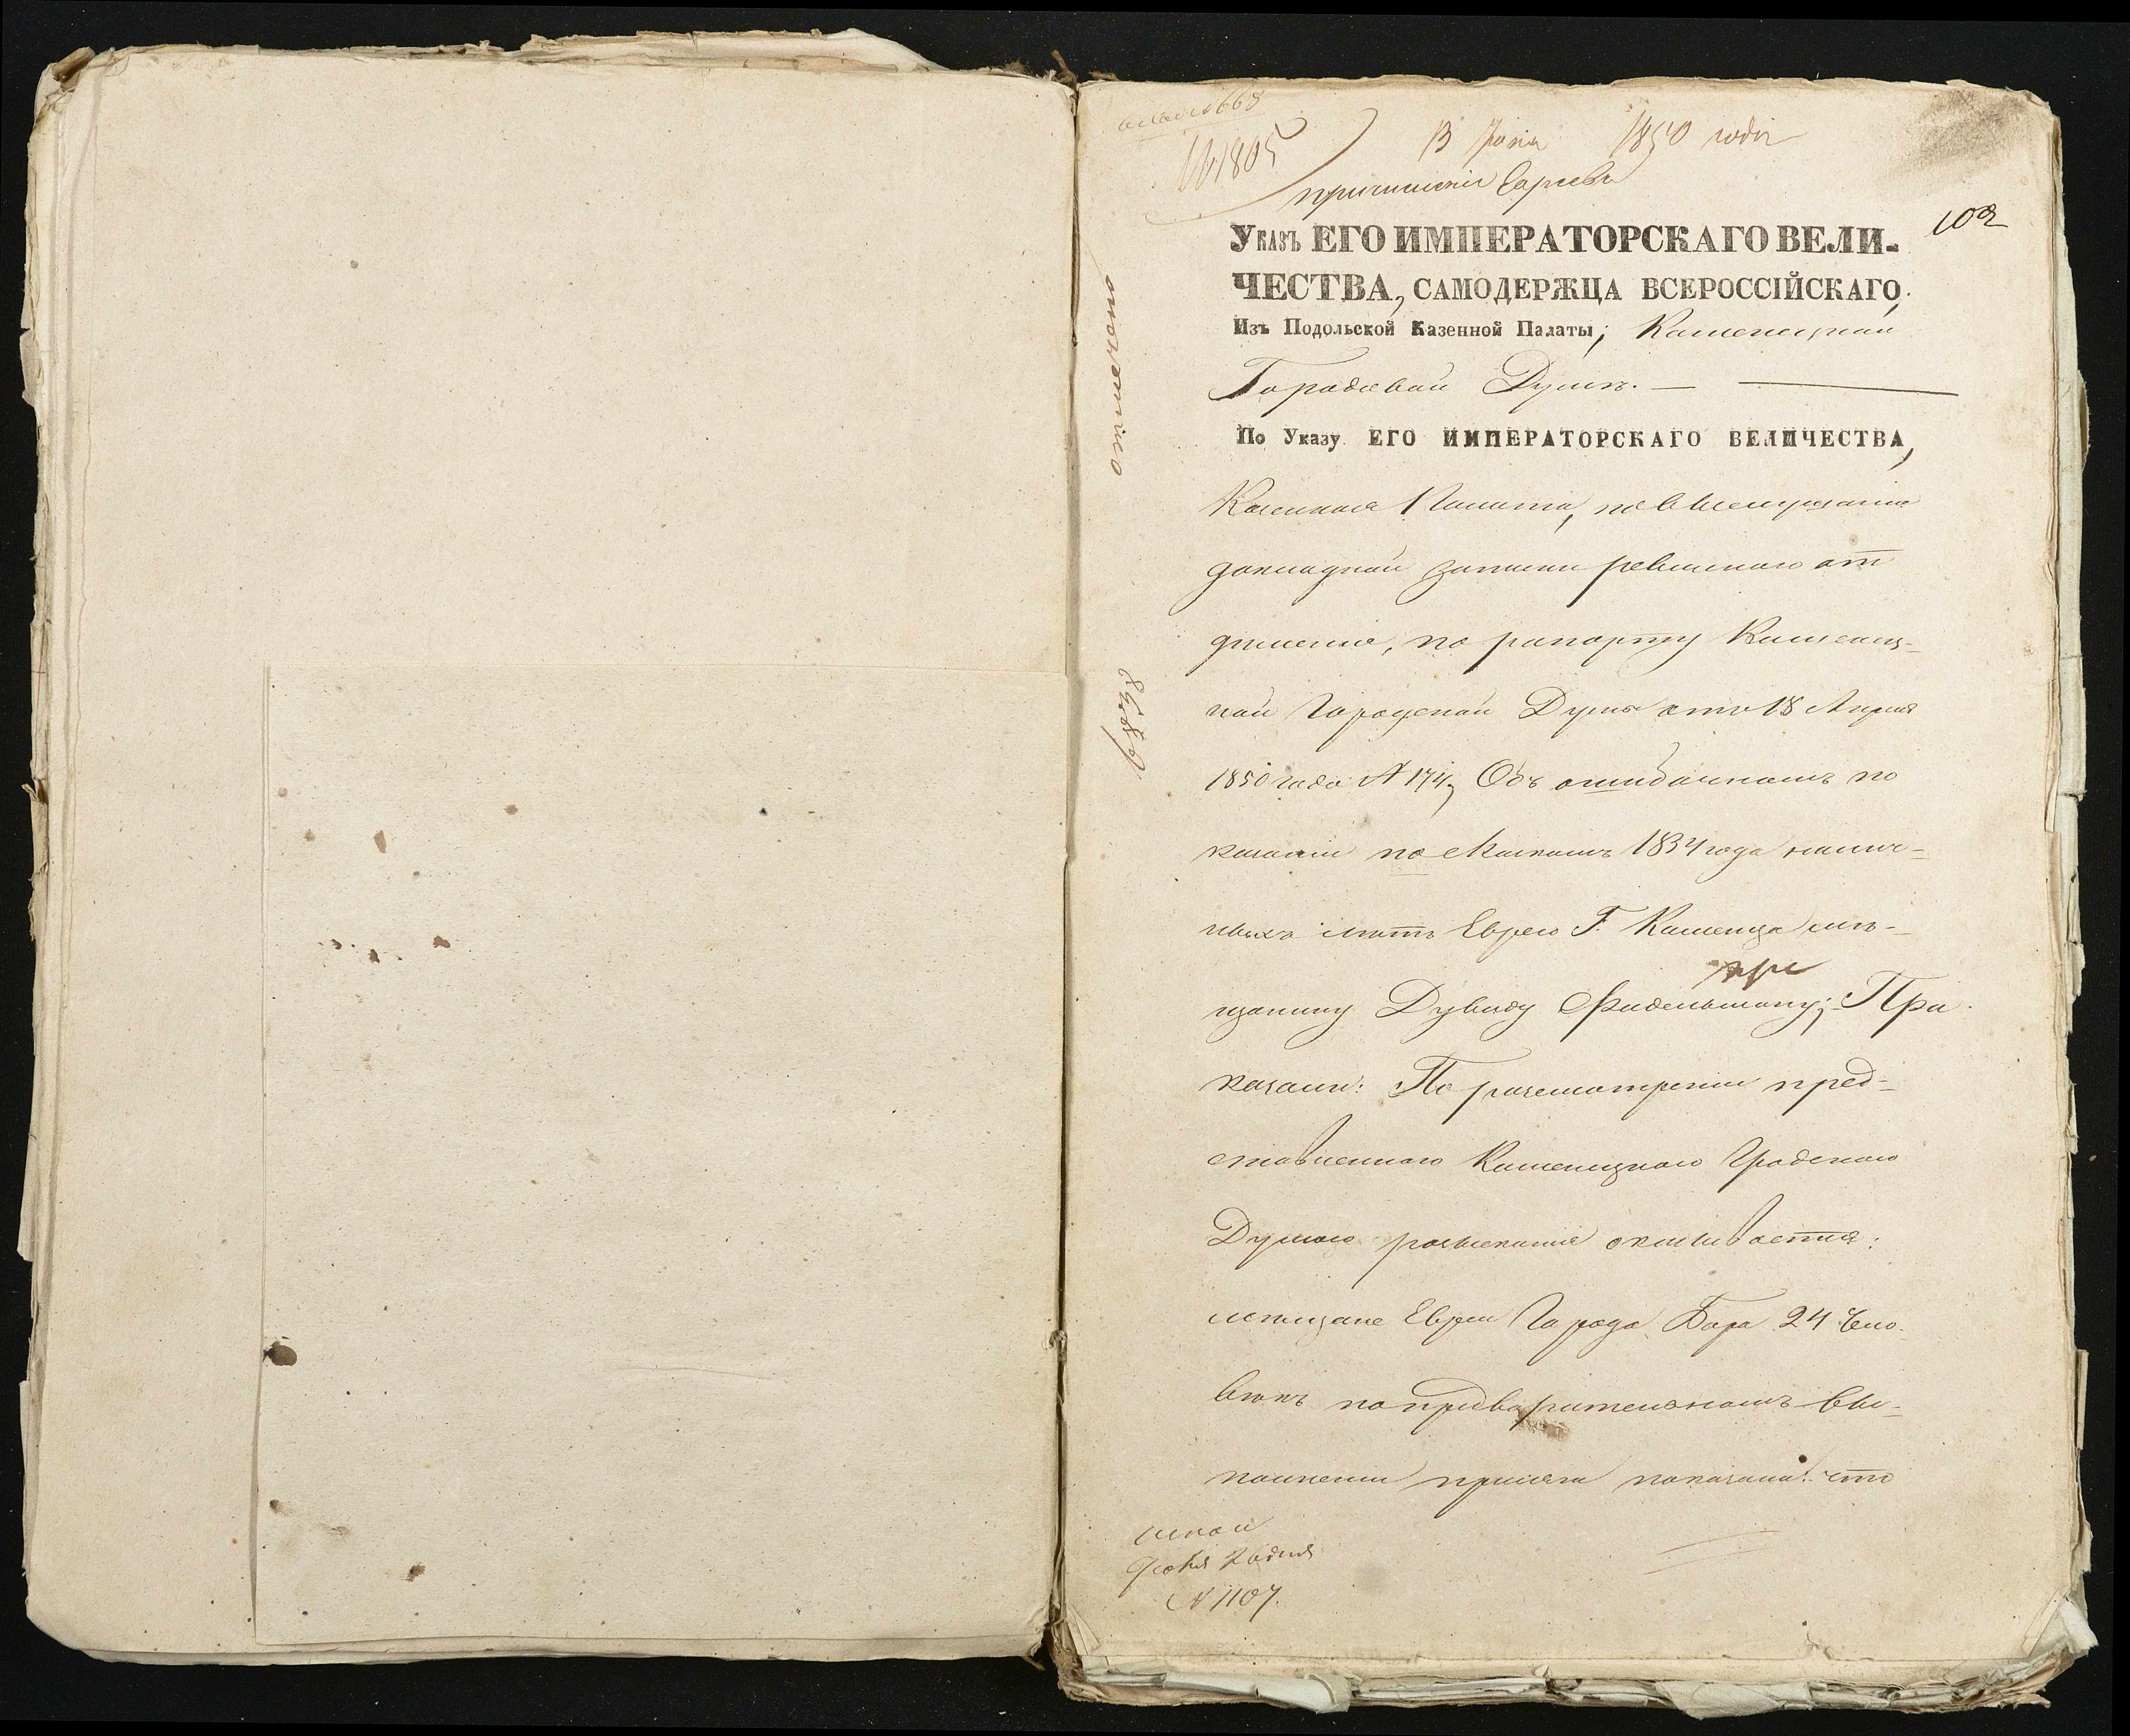 № 1805
13 Іюня 1850 года
причислении Евреевъ
102
Указъ ЕГО ИМПЕРАТОРСКАГО ВЕЛИ-
ЧЕСТВА, САМОДЕРЖЦА ВСЕРОССІЙСКАГО,
Изъ Подольской Казенной Палаты, Каменецкой
Городовой Думѣ.
По Указу ЕГО ИМПЕРАТОРСКАГО ВЕЛИЧЕСТВА,
Казенная Палата, по выслушаніи
докладной записки ревизскаго от
дѣленія, по рапорту Каменец-
кой Городской Думы отъ 18 Апрѣля
1850 года № 174, Объ ошибочномъ по
казаніи по сказкамъ 1834 года налич-
ныхъ лѣтъ Еврею Г. Каменца мѣ-
щанину Дувиду Фидельману; При
казали: По разсмотрѣніи пред-
ставленнаго Каменецкою Градскою
Думою розысканія оказывается:
мѣщане Евреи Города Бара 24 чело-
вѣкъ по предварительномъ вы-
полненіи присяги показали: что
отмечено
№ 1107.